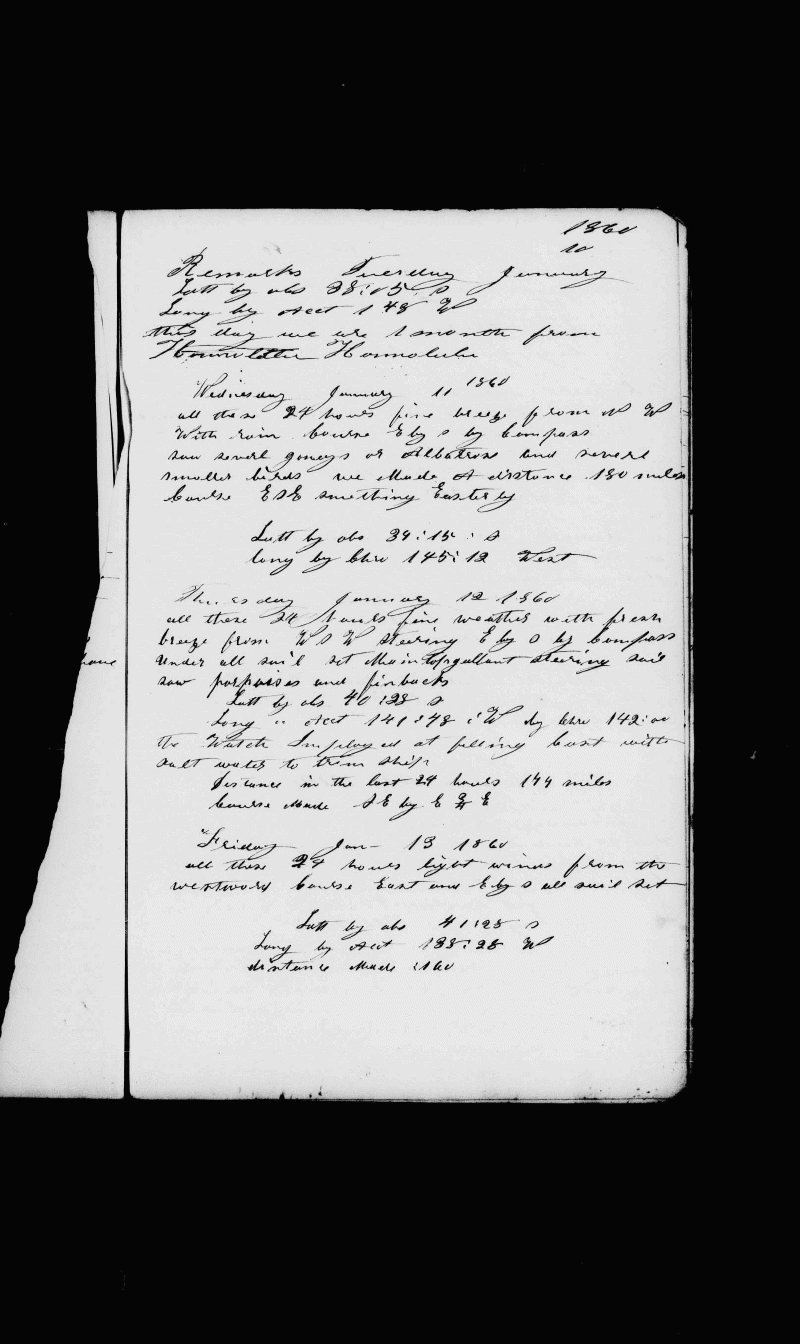 1860
10
Remarks Tuesday January
Latt by obs 38:05 S
Long by Acct 148 W
this day we are 1 month from
Honnolulu
Wednesday January 11 1860
all these 24 hours fine breeze from N W
With rain Course E by S by Compass
saw severl goneys or Albatross and severl
smaller birds we Made A distance 180 miles
Course ESE smething Easterly
Latt by obs 39:15 : S
long by Chro 145:12 West
Thuesday January 12 1860
all these 24 hours fine weather with fresh
breeze from W S W steering E by S by Compass
under all sail set Main topgallant steering sail
saw porpoises and finbacks
Latt by obs 40:28 S
Long " Acct 141:48 : W by Chro 142:00
the Watch Imployed at filling Cast with
salt water to trim ship
Distance in the last 24 hours 144 miles
Course Made S E by E ¾ E
Friday Jan- 13 1860
all these 24 hours light winds from the
westword Course East and E by S all sail set
Latt by obs 41:28 S
Long by Acct 138:28 W
distance Made :160
have